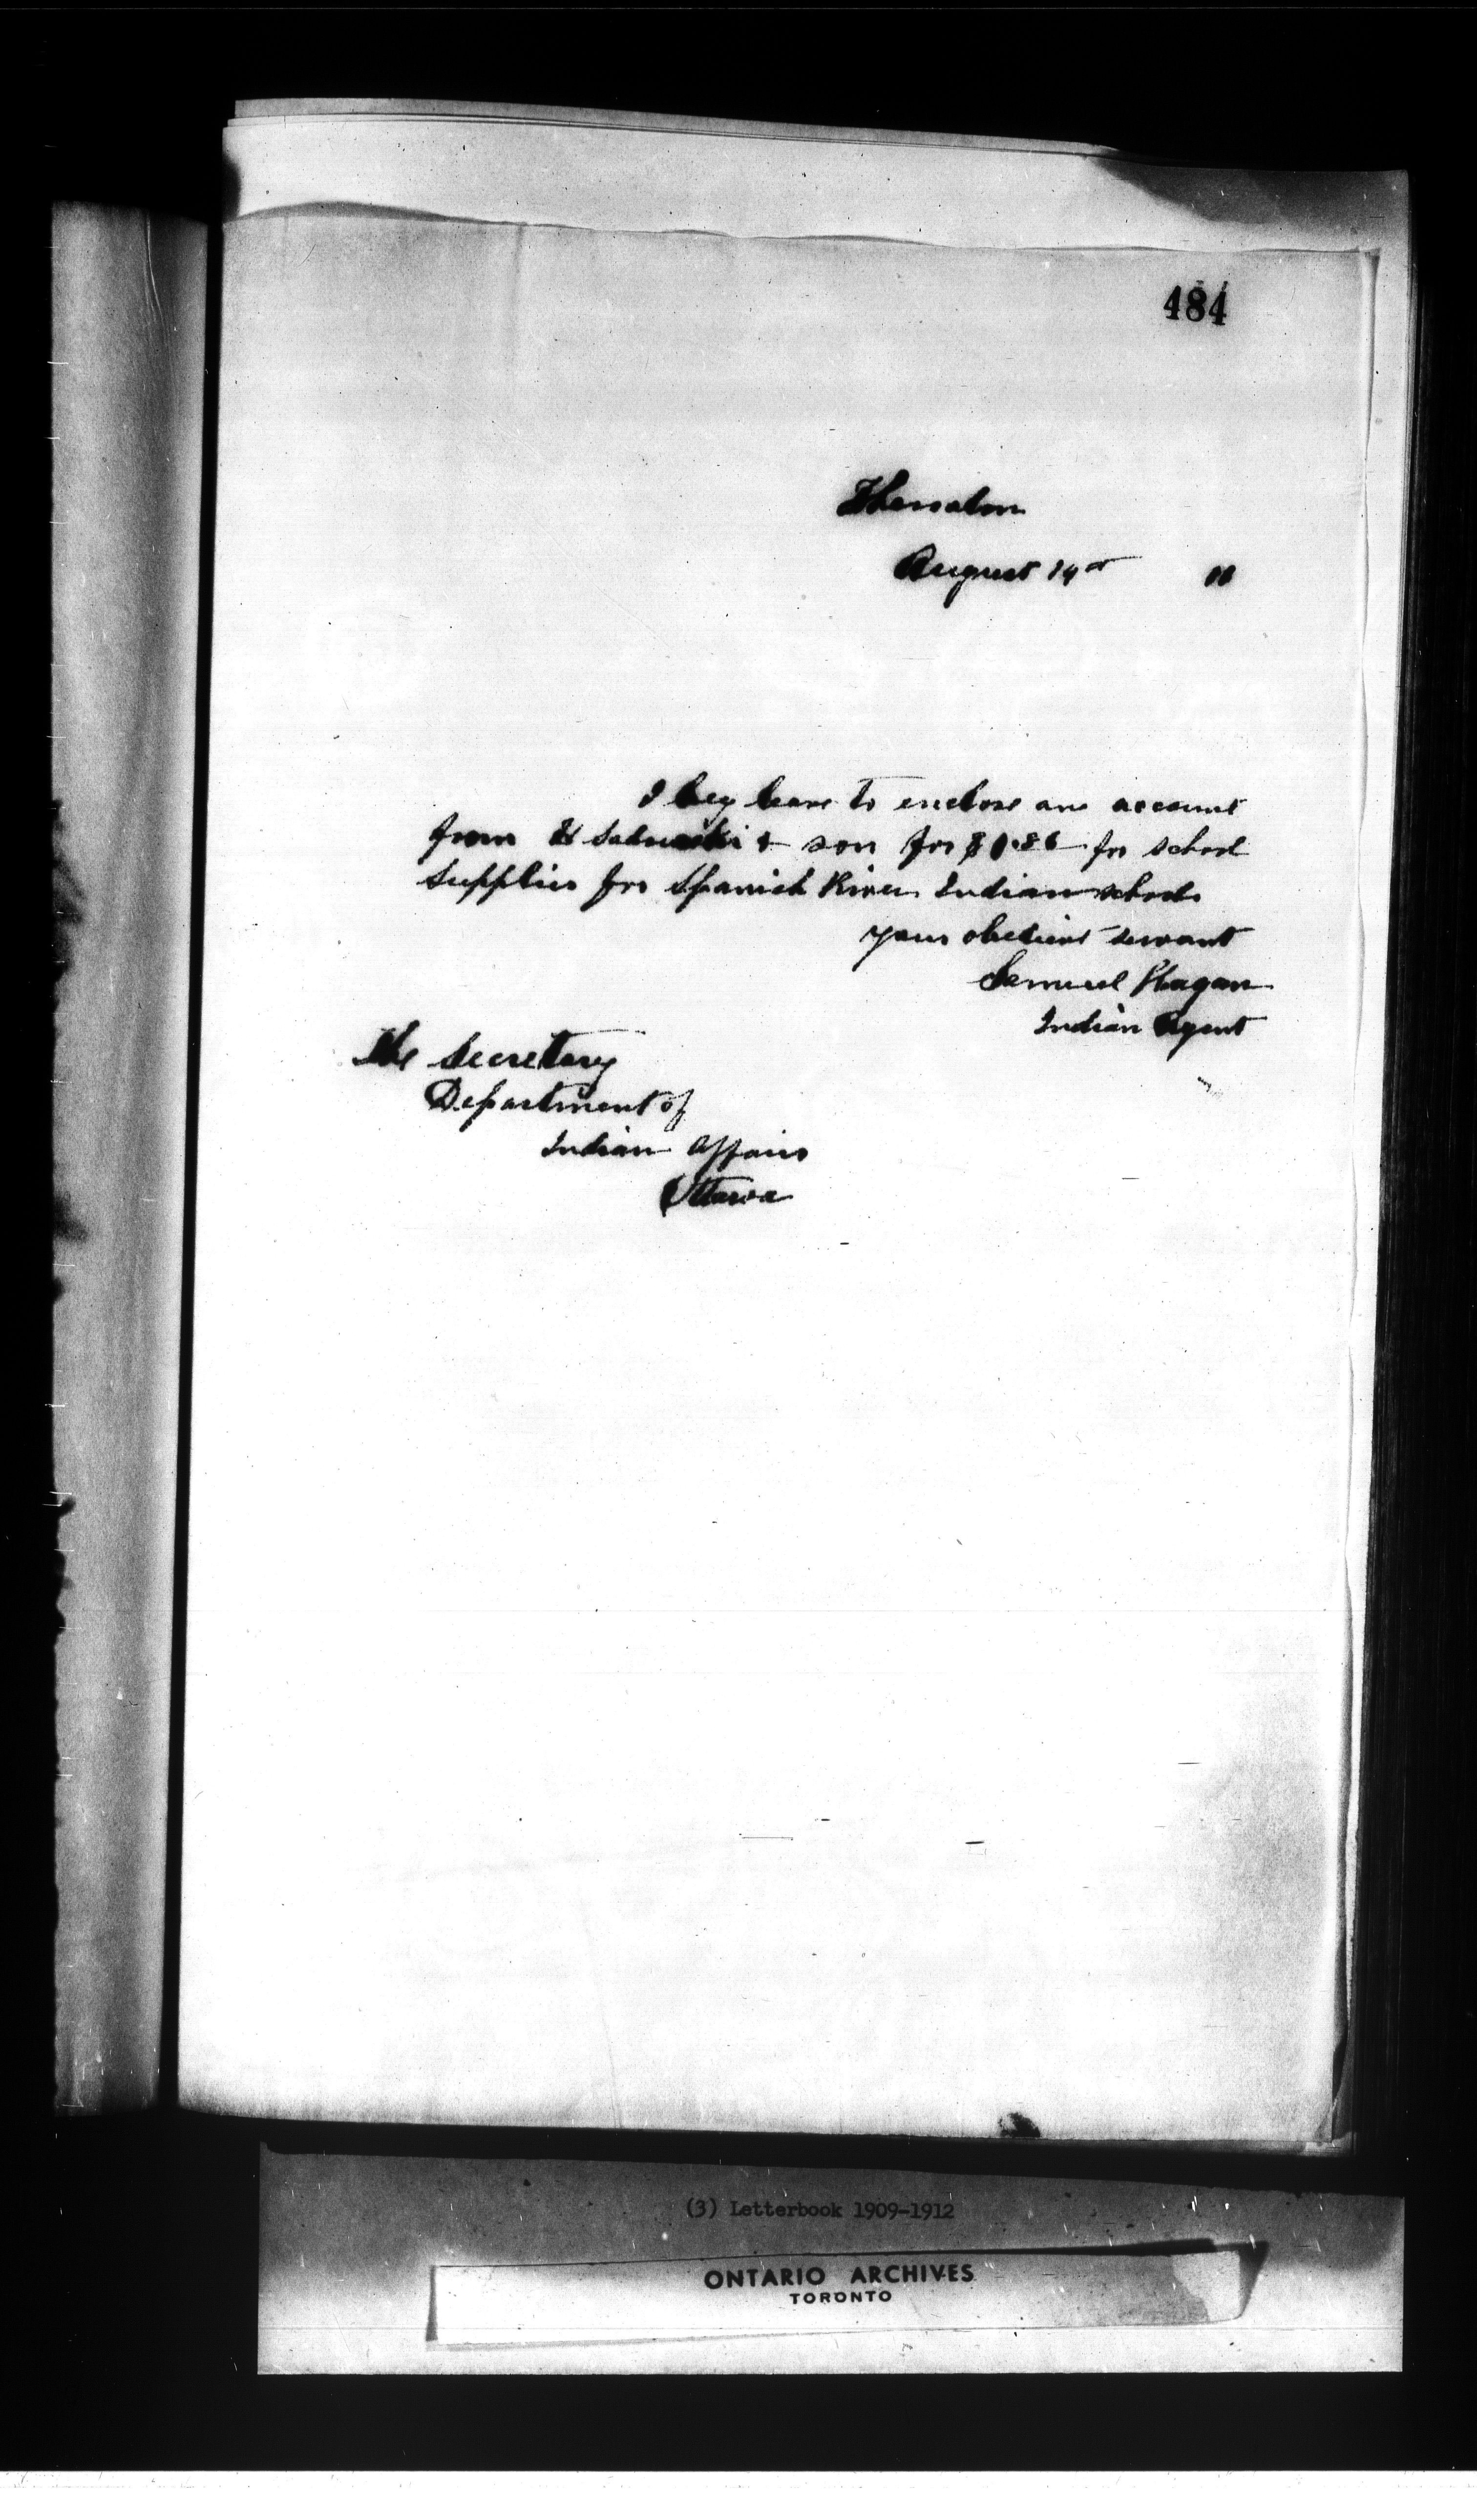 484
Thessalon
August 14th 11
I beg leave to enclose an account
from & son for for school
supplies for Spanish River Indian school
your obedient servant
Samuel Hagan
Indian Agent
The Secretary
Department of
Indian Affairs
Ottawa
(3) Letterbook 1909-1912
ONTARIO ARCHIVES
TORONTO